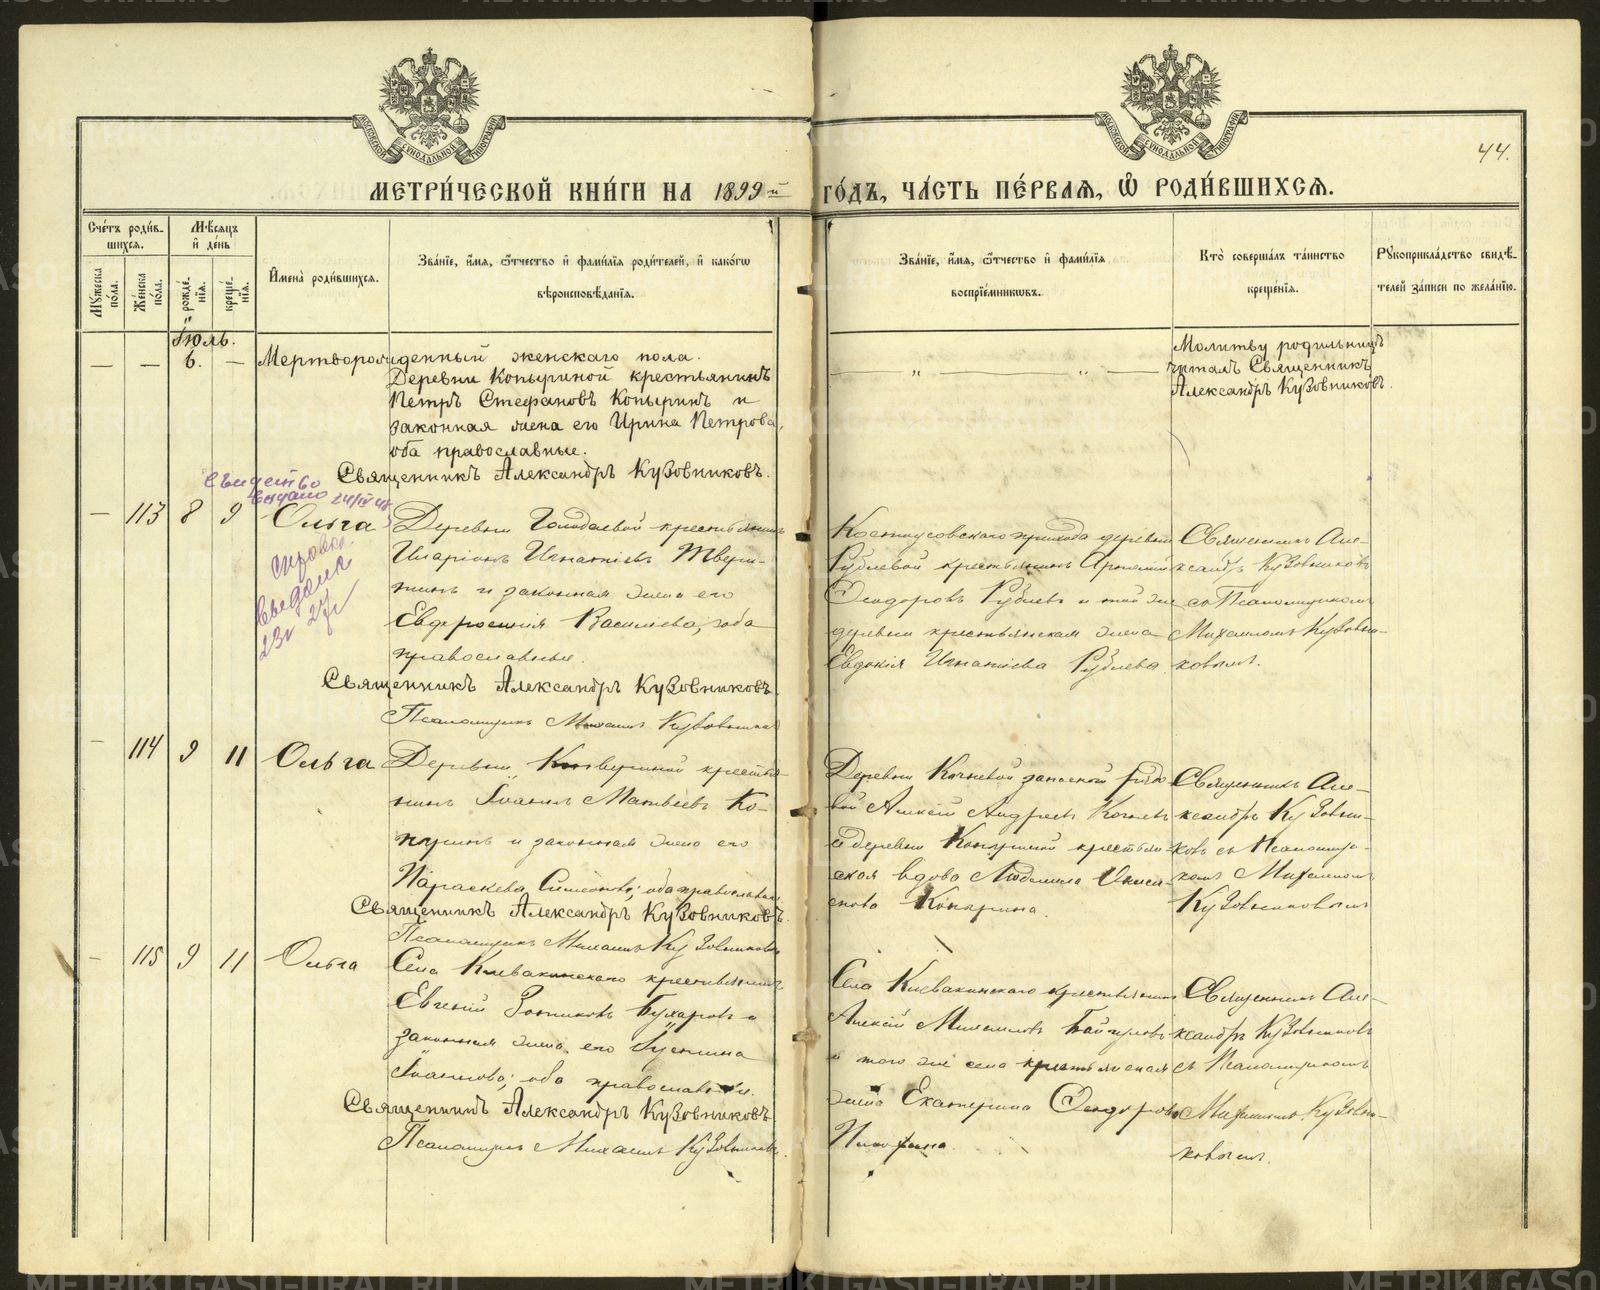 44.
МЕТРИ́ЧЕСКОЙ КНИ́ГИ НА 1899й ГО́ДЪ, ЧА́СТЬ ПЕ́РВАѦ, Ѡ҆ РОДИ́ВШИХСѦ.
Сче́тъ роди́в-
шихсѧ.
Мѣ́сѧцъ
и҆ де́нь
Мꙋ́жеска по́ла.
Же́нска по́ла.
рожде́-
нїѧ.
креще́-
нїѧ.
И҆мена̀ роди́вшихсѧ.
Зва́нїе, и҆́мѧ, ѻ҆́тчество и҆ фами́лїѧ роди́телей, и҆ како́гѡ
вѣроисповѣ́данїѧ.
Зва́нїе, и҆́мѧ, ѻ҆́тчество и҆ фами́лїѧ
воспрїе́мникѡвъ.
Кто̀ соверша́лъ та́инство
креще́нїѧ.
Рꙋкоприкла́дство свидѣ́-
телей за́писи по жела́нїю.
Іюль.
— — 6. — Мертворожденный женскаго пола.
Деревни Копыриной крестьянинъ
Петръ Стефановъ Копыринъ и
законная жена его Ирина Петрова,
оба православные.
Священникъ Александръ Кузовниковъ.
Молитву родильницѣ
читалъ Священникъ
Александръ Кузовниковъ.
— 113 8 9 Ольга
справка
23
Деревни Голодаевой крестьянинъ
Иларіонъ Игнатіевъ Твери-
тинъ и законная жена его
Евфросинія Василіева, оба
православные.
Священникъ Александръ Кузовниковъ
Псаломщикъ Михаилъ Кузовниковъ
Костоусовскаго прихода деревни
Рублевой крестьянинъ
Ѳеодоровъ Рублевъ и той же
деревни крестьянская жена
Евдокія Игнатіева Рублева
Священникъ Але-
ксандръ Кузовниковъ
съ Псаломщикомъ
Михаиломъ Кузовни-
ковымъ.
— 114 9 11 Ольга
Деревни Копыриной крестья-
нинъ Іоаннъ Матвѣевъ Ко-
пыринъ и законная жена его
Параскева Симеонова; оба православные
Священникъ Александръ Кузовниковъ.
Псаломщикъ Михаилъ Кузовниковъ
Деревни Кочневой запасной рядо-
вой Алексій Андреевъ Кочневъ
и деревни Копыриной крестьян-
ская вдова Людмила
Копырина.
Священникъ Але-
ксандръ Кузовни-
ковъ съ Псаломщи-
комъ Михаиломъ
Кузовниковымъ
— 115 9 11 Ольга
Села Клевакинскаго крестьянинъ
Евгеній Зотиковъ Бухаровъ и
законная жена его Іустина
Іоаннова; оба православные.
Священникъ Александръ Кузовниковъ
Псаломщикъ Михаилъ Кузовниковъ.
Села Клевакинскаго крестьянинъ
Алексій Михаиловъ
и того же села крестьянская
жена Екатерина Ѳеодорова
Священникъ Але-
ксандръ Кузовниковъ
съ Псаломщикомъ
Михаиломъ Кузовни-
ковымъ.
METRIKI.GASO-URAL.RU